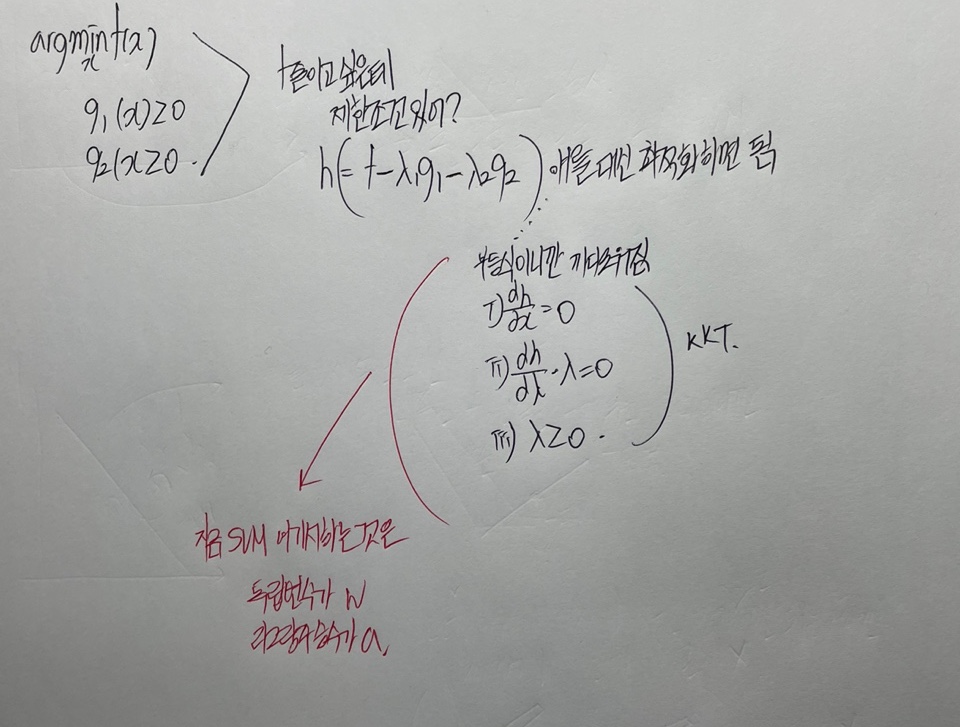 argmin f(x)
x
g₁(x)≥0
g₂(x≥0.
f줄이고 싶은데
제한조건 있어?
h(= f-λ₁g₁-λ₂g₂) 얘를 대신 최적화하면 됨
부등식이니깐 까다로워짐
I) dh/dx = 0
II) dh/dλ · λ = 0
III) λ≥0.
KKT.
지금 SVM 얘기하는 것은
독립변수가 w
라그랑주 승수가 a.